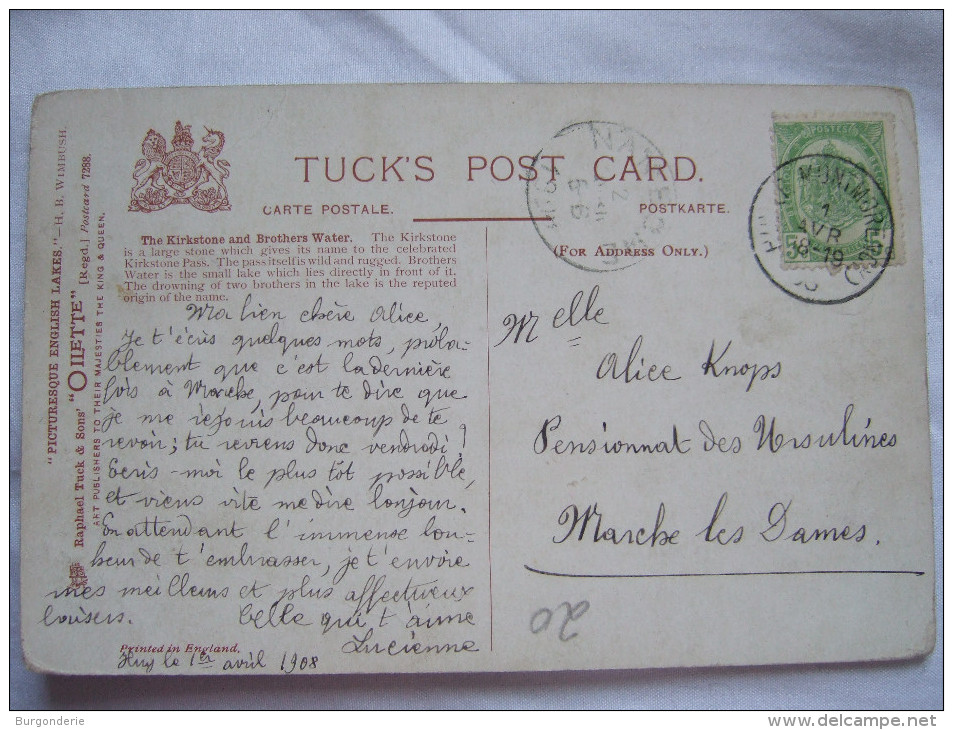 TUCK'S POST CARD.
CARTE POSTALE.
POSTKARTE.
(FOR ADDRESS ONLY.)
"PICTURESQUE ENGLISH LAKES."—H. B. WIMBUSH.
Raphael Tuck & Sons' "OILETTE" [Regd.] Postcard 7288.
ART PUBLISHERS TO THEIR MAJESTIES THE KING & QUEEN.
The Kirkstone and Brothers Water. The Kirkstone
is a large stone which gives its name to the celebrated
Kirkstone Pass. The pass itself is wild and rugged. Brothers
Water is the small lake which lies directly in front of it.
The drowning of two brothers in the lake is the reputed
origin of the name.
Ma bien chère Alice,
Je t'écris quelques mots, proba-
blement que c'est la dernière
fois à Marche, pour te dire que
je me réjouis beaucoup de te
revoir; tu reviens donc vendredi!
Ecris-moi le plus tôt possible,
et viens vite me dire bonjour.
En attendant l'immense bon-
heur de t'embrasser, je t'envoie
mes meilleurs et plus affectueux
baisers. Celle qui t'aime
Lucienne
Printed in England.
Huy le 1er avril 1908
Melle
Alice Knops
Pensionnat des Ursulines
Marche les Dames.
20
POSTES
1
AVR
18-19
Burgonderie
www.delcampe.net